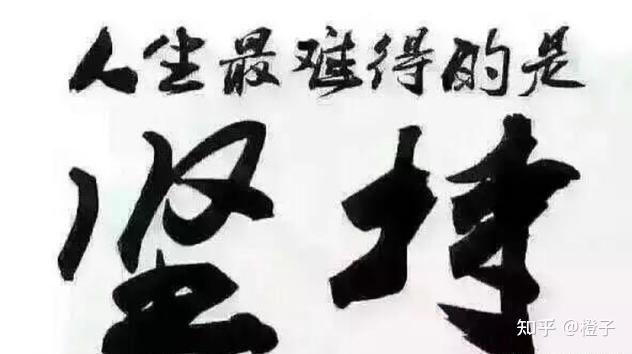 人生最难得的是
坚持
知乎 @橙子